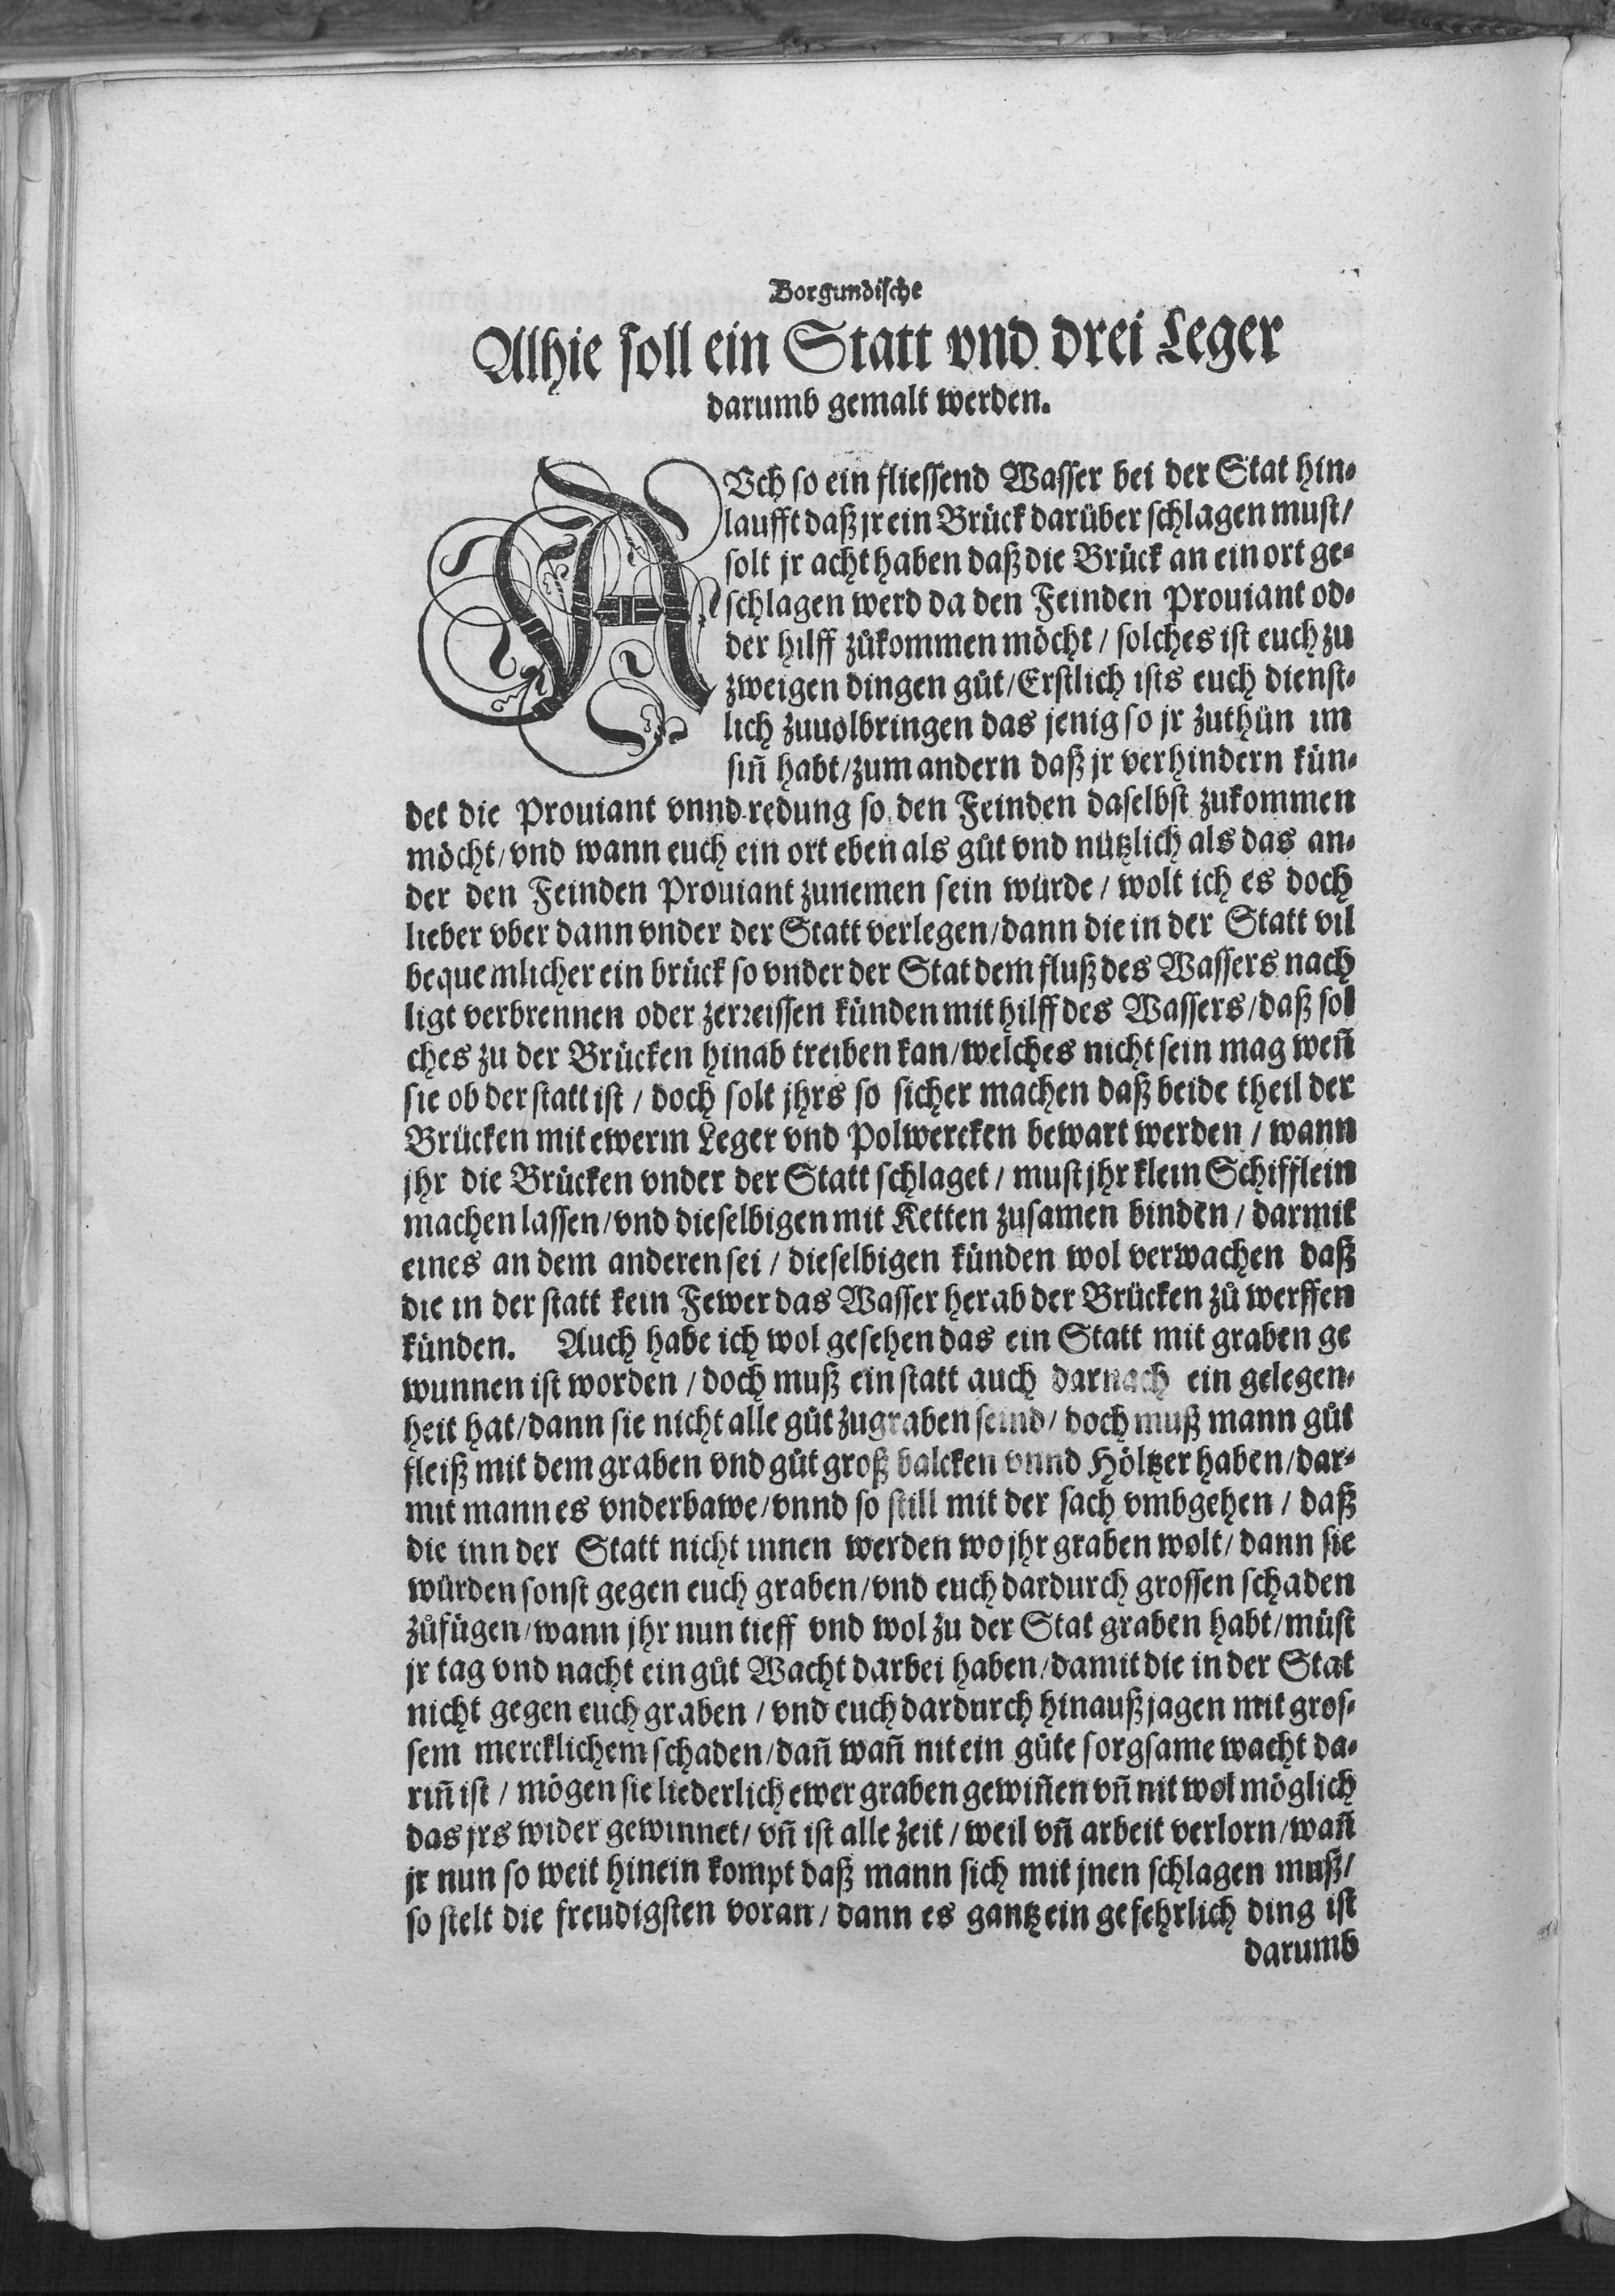 Borgundische
Alhie soll ein Statt vnd drei Leger
darumb gemalt werden.
AVch so ein fliessend Wasser bei der Stat hin-
laufft daß jr ein Brück darüber schlagen must/
solt jr acht haben daß die Brück an ein ort ge-
schlagen werd da den Feinden Prouiant od-
der hilff zůkommen möcht / solches ist euch zu
zweigen dingen gůt/Erstlich ists euch dienst-
lich zuuolbringen das jenig so jr zuthůn im
siñ habt/zum andern daß jr verhindern kün-
det die Prouiant vnnd redung so den Feinden daselbst zukommen
möcht/vnd wann euch ein ort eben als gůt vnd nützlich als das an-
der den Feinden Prouiant zunemen sein würde / wolt ich es doch
lieber vber dann vnder der Statt verlegen/dann die in der Statt vil
bequemlicher ein brück so vnder der Stat dem fluß des Wassers nach
ligt verbrennen oder zerreissen künden mit hilff des Wassers/daß sol
ches zu der Brücken hinab treiben kan/welches nicht sein mag weñ
sie ob der statt ist / doch solt jhrs so sicher machen daß beide theil der
Brücken mit ewerm Leger vnd Polwercken bewart werden / wann
jhr die Brücken vnder der Statt schlaget / must jhr klein Schifflein
machen lassen/vnd dieselbigen mit Ketten zusamen binden / darmit
eines an dem anderen sei / dieselbigen künden wol verwachen daß
die in der statt kein Fewer das Wasser herab der Brücken zů werffen
künden. Auch habe ich wol gesehen das ein Statt mit graben ge
wunnen ist worden / doch muß ein statt auch darnach ein gelegen-
heit hat/dann sie nicht alle gůt zugraben seind/ doch muß mann gůt
fleiß mit dem graben vnd gůt groß balcken vnnd Höltzer haben/dar-
mit mann es vnderbawe/vnnd so still mit der sach vmbgehen / daß
die inn der Statt nicht innen werden wo jhr graben wolt/ dann sie
würden sonst gegen euch graben/vnd euch dardurch grossen schaden
zůfügen/wann jhr nun tieff vnd wol zu der Stat graben habt/müst
jr tag vnd nacht ein gůt Wacht darbei haben/damit die in der Stat
nicht gegen euch graben / vnd euch dardurch hinauß jagen mit gros-
sem mercklichem schaden/dañ wañ nit ein gůte sorgsame wacht da-
riñ ist / mögen sie liederlich ewer graben gewiñen vñ nit wol möglich
das jrs wider gewinnet/ vñ ist alle zeit / weil vñ arbeit verlorn/wañ
jr nun so weit hinein kompt daß mann sich mit jnen schlagen muß/
so stelt die freudigsten voran/ dann es gantz ein gefehrlich ding ist
darumb